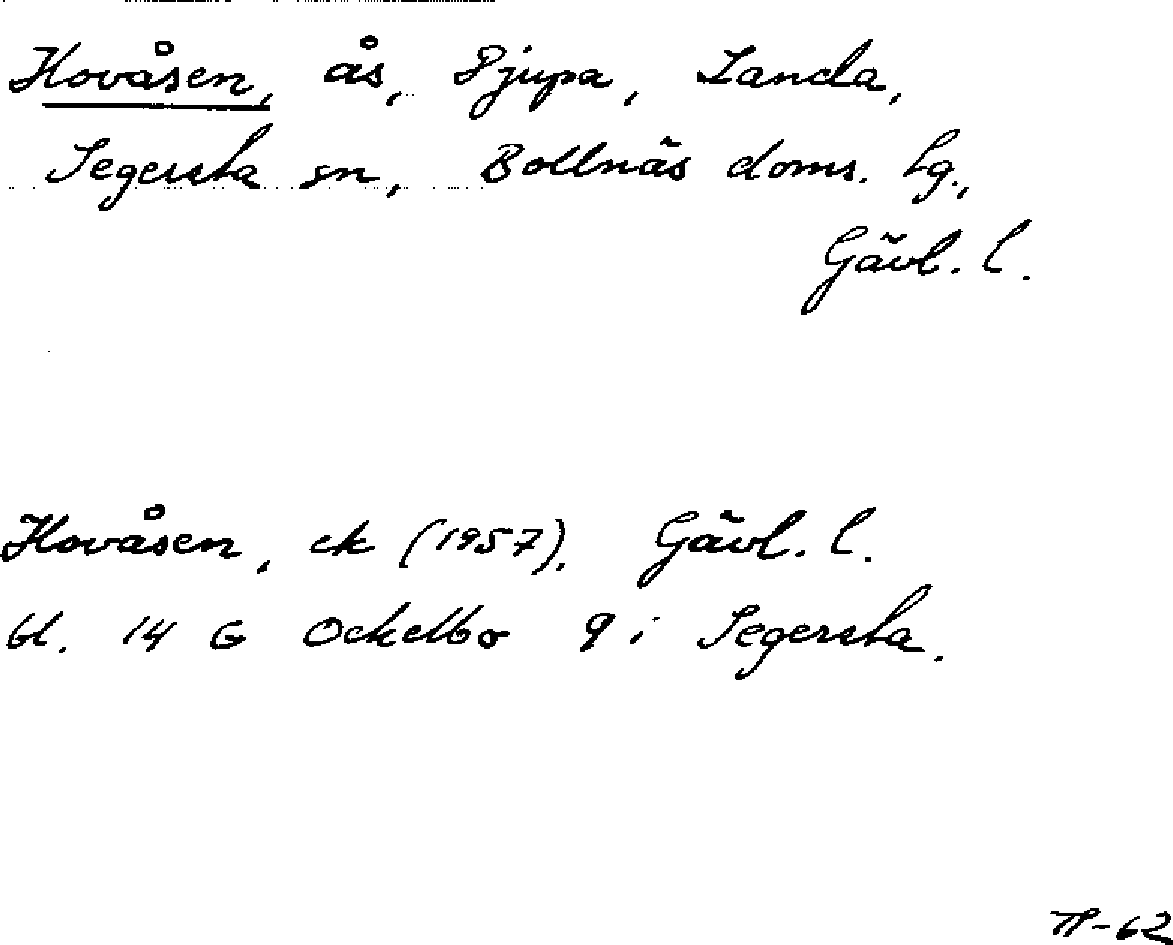 Hovåsen, ås, Djupa, Landa,
Segersta sn, Bollnäs doms. Lg.,
Gävl. l.
Hovåsen, ek (1957). Gävl. l.
bl. 14 G Ockelbo 9 i Segersta.
-62